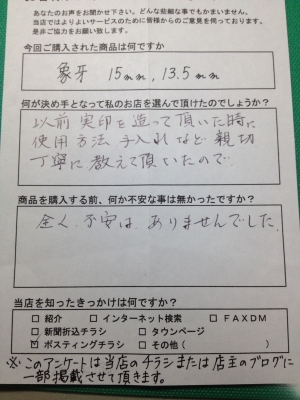 あなたのお声をお聞かせ下さい。どんな些細な事でもかまいません。
当店ではよりよいサービスのために皆様からのご意見を伺っております。
是非ご協力をお願い致します。
今回ご購入された商品は何ですか
象牙 15mm, 13.5mm
何が決め手となって私のお店を選んで頂けたのでしょうか?
以前 実印を造って頂いた時に
使用方法 手入れなど 親切
丁寧に教えて頂いたので
商品を購入する前、何か不安な事は無かったですか?
全く不安は、ありませんでした。
当店を知ったきっかけは何ですか?
□ 紹介 □ インターネット検索 □ FAXDM
□ 新聞折込チラシ □ タウンページ
☑ ポスティングチラシ □ その他( )
※このアンケートは当店のチラシまたは店主のブログに
一部掲載させて頂きます。